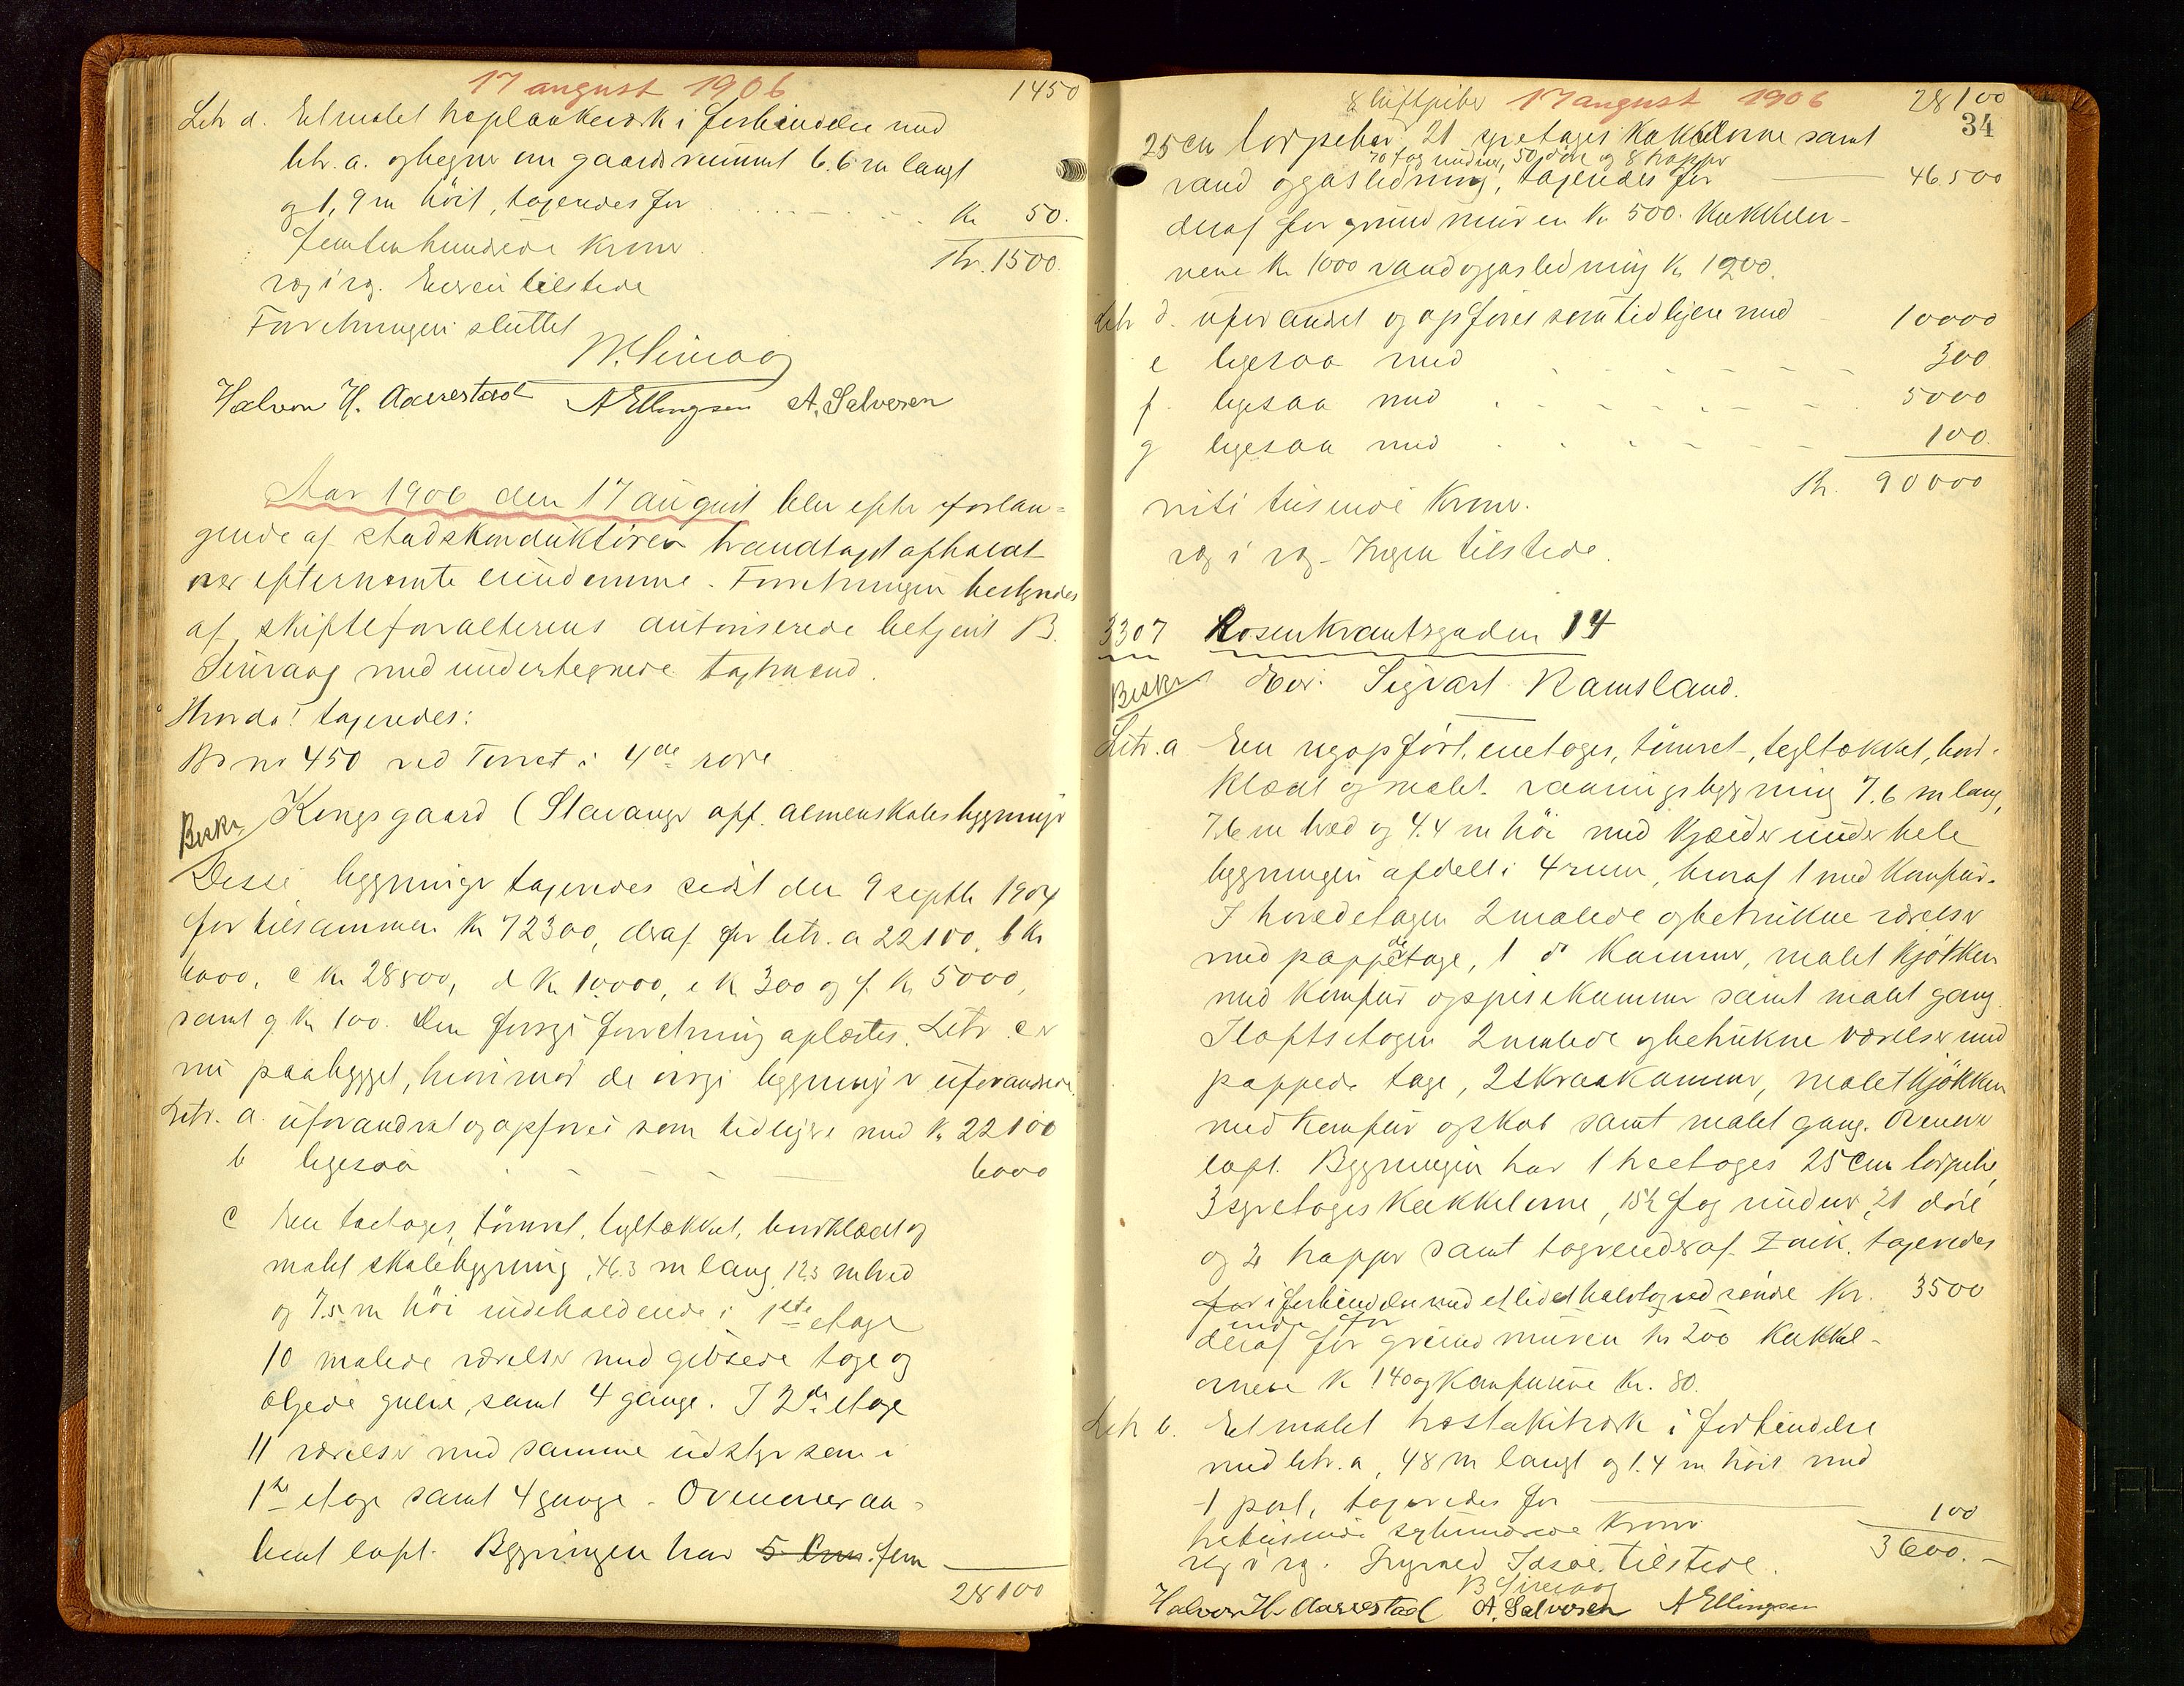 17 august 1906
1450
Litr d. Et malet træplankeværk i forbindelse med
litr. a. og hegner om gaardsrummet 6.6 m langt
og 1,9 m höit, taxeredes for . . . . . Kr 50.
femtenhundrede Kroner Kr. 1500.
rög i rög. Eieren tilstede
Forretningen sluttet
Halvor H. Aarrestad A Ellingsen A. Salvesen
Aar 1906 den 17 august blev efter forlan-
gende af stadskonduktören brandtaxt afholdt
over efternævnte eiendomme. Forretningen bestyredes
af skifteforvalterens autoriserede betjent B.
Simraag med undertegnede taxtmænd.
Hvorda! taxeredes:
B. no 450 ved Torvet i 4de rode
Beskr Kongsgaard (Stavanger off. almenskoles bygninger
Disse bygninger taxeredes sidst den 9 septb 1904
for tilsammen Kr 72300, deraf for litr. a 22100, b Kr
6000, c Kr 28800, d Kr 10000, e Kr 300 og f Kr 5000,
samt g Kr 100. Den forrige forretning oplæstes. Litr c er
nu paabygget, hvorimod de övrige bygninger uforandrede.
Litr. a. uforandret og opföres som tidligere med Kr 22100
b ligesaa - - - 6000
c En toetages, tömret, tegltækket, bordklædt og
malet skolebygning, 46.3 m lang 12.5 m bred
og 7.5 m höi indeholdende i 1ste etage
10 malede værelser med gibsede tage og
oljede gulve, samt 4 gange. I 2den etage
11 værelser med samme udstyr som i
1ste etage samt 4 gange. Ovenover aa-
bent loft. Bygningen har 5 fem
28100
8 luftpiber 17 august 1906 28100
34
25 cm torpiber 21 syvetages kakkelovne samt
70 fag vinduer, 50 döre og 8 trapper
vand og gasledning, taxeredes for 46500
deraf for grundmuren Kr 500. Kakkelov-
nene Kr 1000 vand og gasledning Kr 1200.
Litr d. uforandret og opföres som tidligere med 10000
e ligesaa med - - - - 300
f ligesaa med . - - - - 5000
g ligesaa med . - - - 100.
Kr. 90000
niti tusinde Kroner.
rög i rög. Ingen tilstede.
3307 Rosenkrantzgaden 14
Beskr Eier: Sigvart Ramsland.
Litr. a En nyopfört, enetages, tömret, tegltækket, bord-
klædt og malet vaaningsbygning 7.6 m lang,
7.6 m bred og 4.4 m höi med kjælder under hele
bygningen afdelt i 4 rum, hvoraf 1 med komfur.
I hovedetagen 2 malede og betrukne værelser
med pappede tage, 1 do kammer, malet kjökken
med komfur og spisekammer samt malet gang
I loftsetagen 2 malede og betrukne værelser med
pappede tage, 2 skraakammer, malet kjökken
med komfur og skab samt malet gang. Ovenover
loft. Bygningen har 1 treetages 25 cm torpibe,
3 syvetages kakkelovne, 15½ fag vinduer, 21 döre
og 2 trapper samt tagrender af zink. taxeredes
for i forbindelse med et lidet halvtag ved söndre Kr. 3500
ende for
deraf for grundmuren Kr 200 kakkel-
ovnene Kr 140 og komfurene Kr. 80.
Litr b. Et malet træstakitværk i forbindelse
med litr. a, 48 m langt og 1.4 m höit med
1 port, taxeredes for 100
tretusinde sexhundrede Kroner 3600.-
rög i rög. Ingen tilstede.
Halvor H. Aarrestad A. Salvesen A Ellingsen